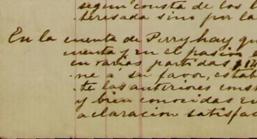 segun consta de los l
teresada sino por la
En la cuenta de Perry hay qu
cuenta y en el pasivo
en varias partidas $
ne á su favor, estab
te las anteriores cons
y bien conocidas en
aclaracion satisfac